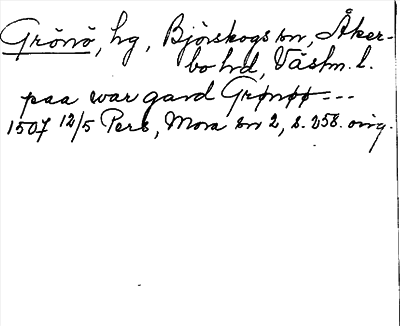 Grönö, hg, Björskogs sn, Åker-
bo hd, Västm. l.
paa war gard Grønøø ---
1507 12/5 Perg, Mora sn 2, s. 258. orig.